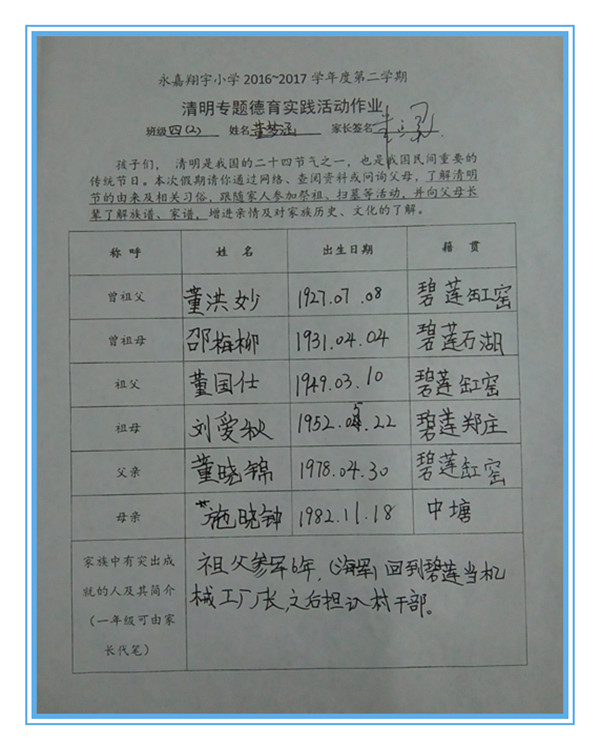 永嘉翔宇小学 2016~2017 学年度第二学期
清明专题德育实践活动作业
班级 四(2) 姓名 董梦涵 家长签名
孩子们， 清明是我国的二十四节气之一，也是我国民间重要的
传统节日。本次假期请你通过网络、查阅资料或问询父母，了解清明
节的由来及相关习俗，跟随家人参加祭祖、扫墓等活动，并向父母长
辈了解族谱、家谱，增进亲情及对家族历史、文化的了解。
称 呼 姓 名 出生日期 籍 贯
曾祖父 董洪妙 1927.07.08 碧莲缸窑
曾祖母 邵梅柳 1931.04.04 碧莲石湖
祖父 董国仕 1949.03.10 碧莲缸窑
祖母 刘爱秋 1952.05.22 碧莲郑庄
父亲 董晓锦 1978.04.30 碧莲缸窑
母亲 施晓钟 1982.11.18 中塘
家族中有突出成
就的人及其简介
（一年级可由家
长代笔）
祖父参军6年，(海军)回到碧莲当机
械工厂厂长，之后担认村干部。